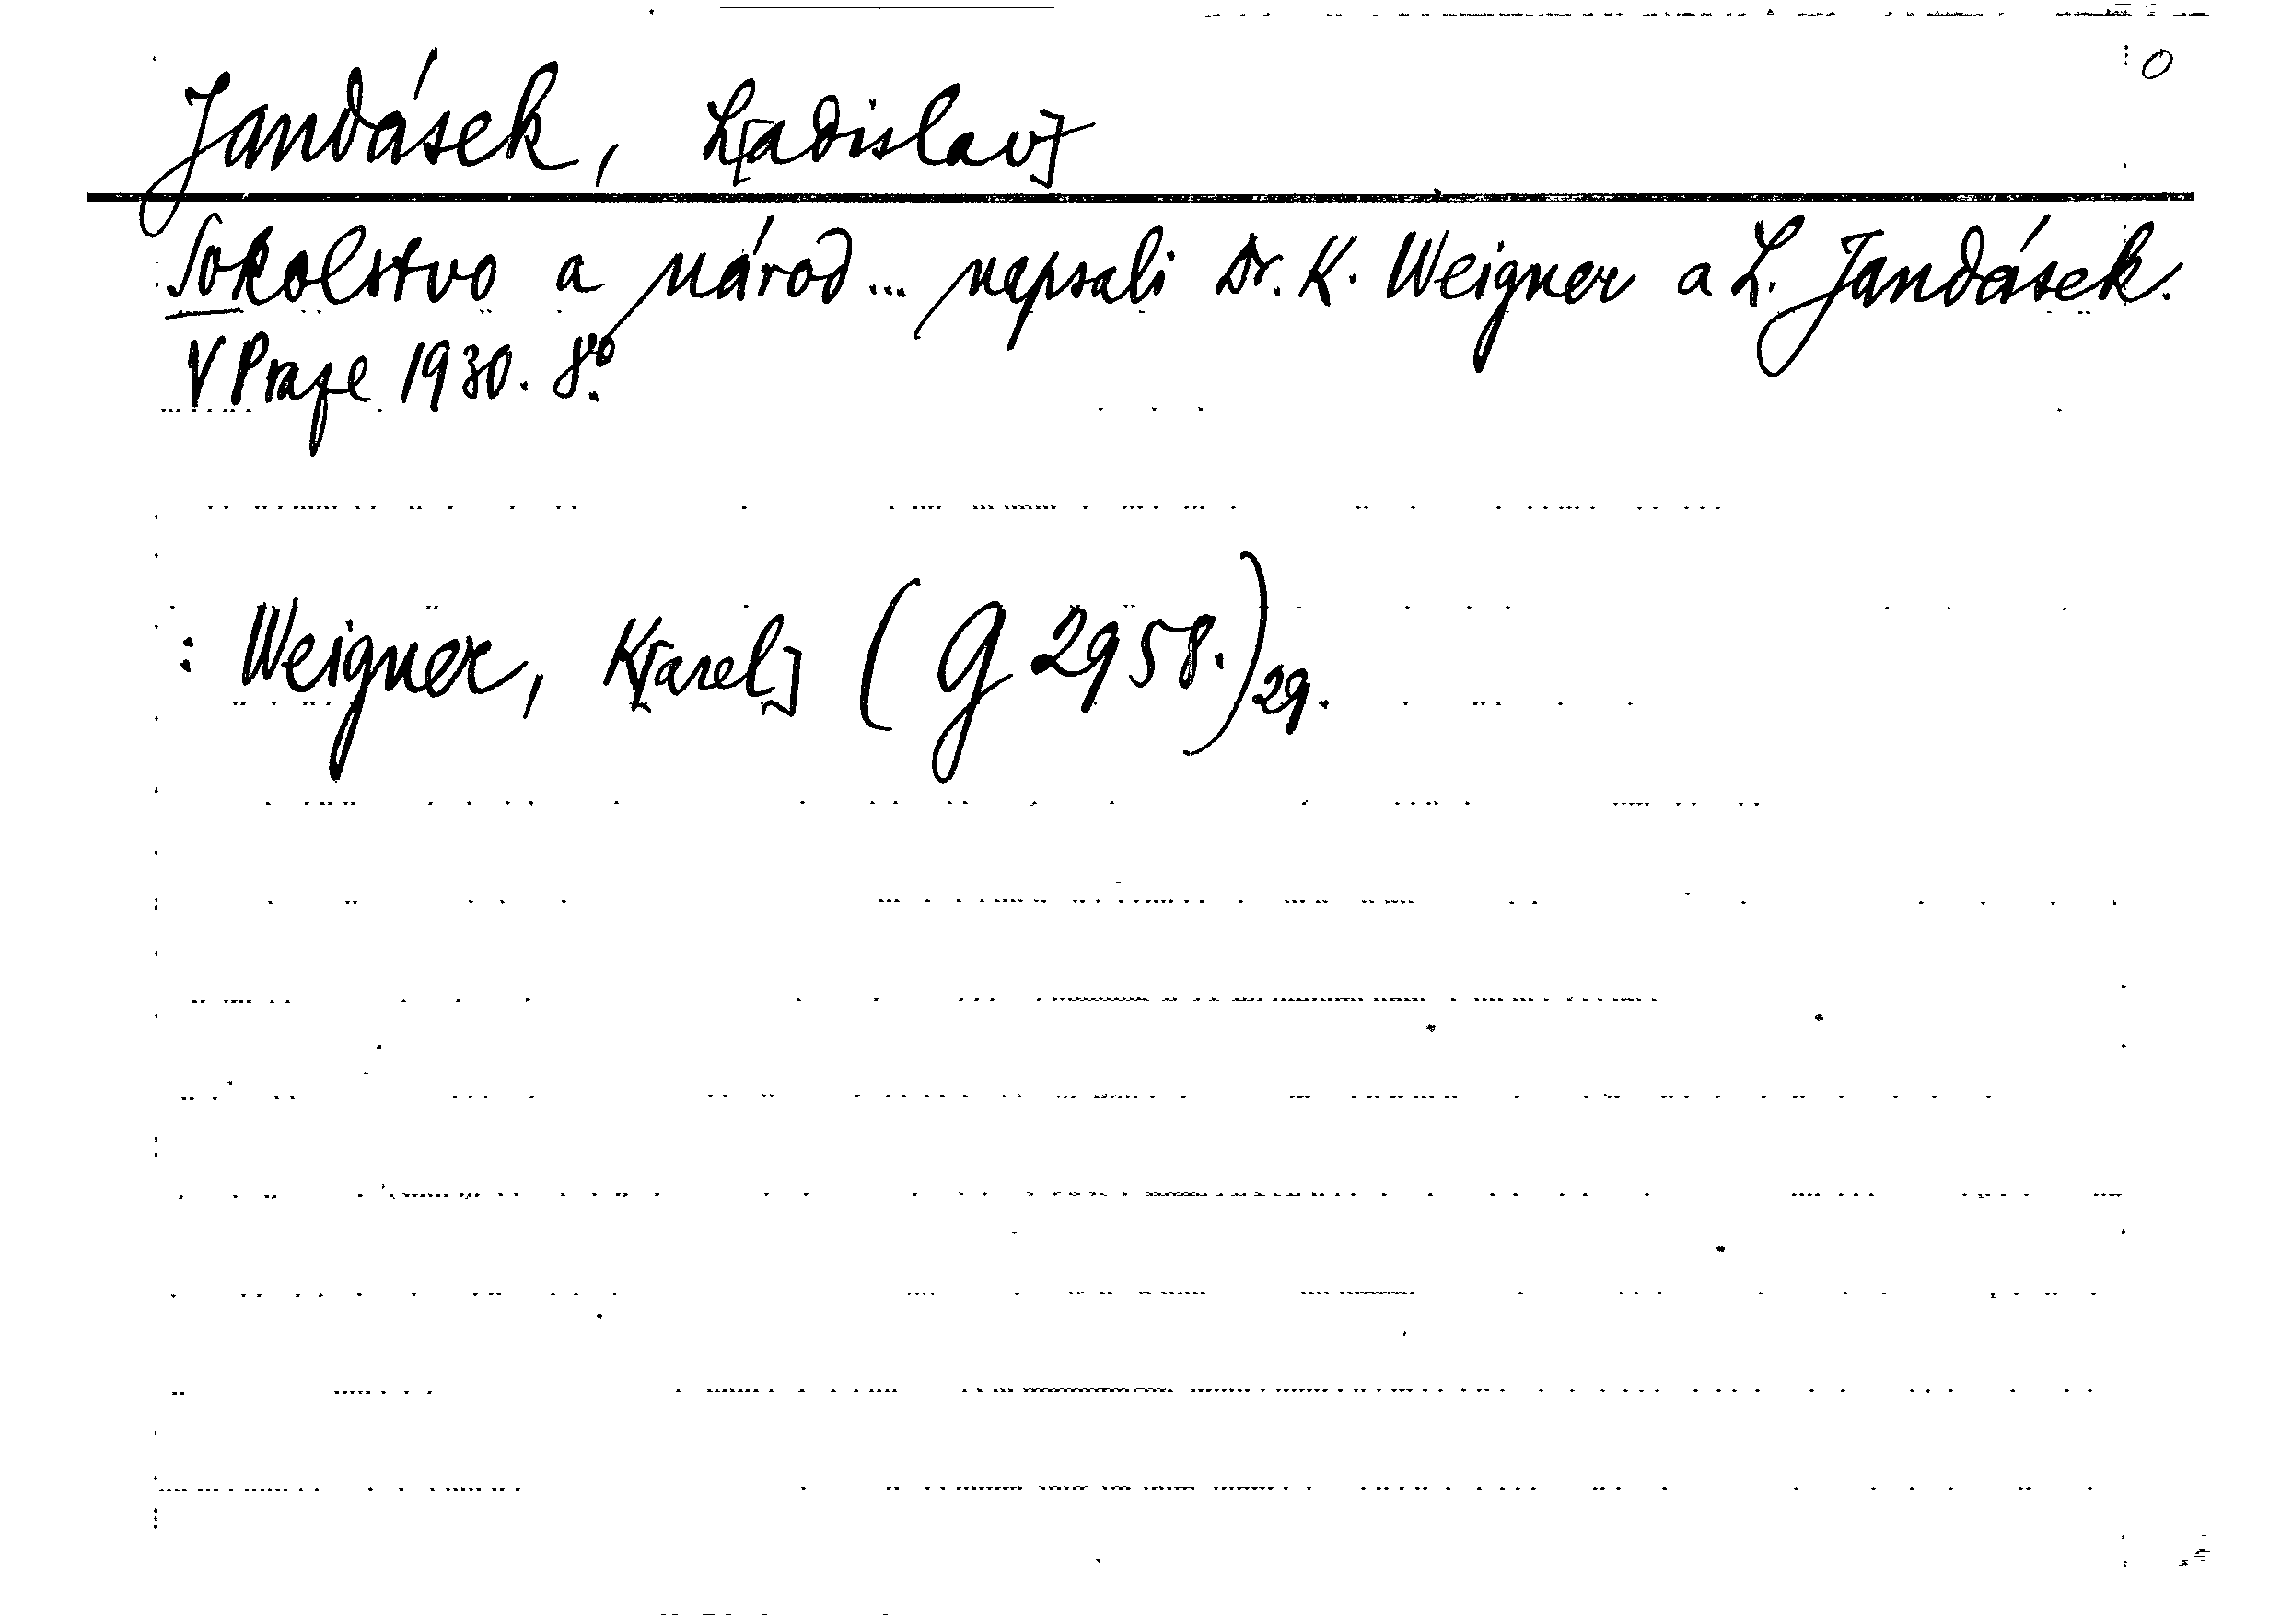 0
Jandásek, L[adislav]
Sokolstvo a národ... napsali Dr. K. Weigner a L. Jandásek.
V Praze 1930. 8º.
: Weigner, K[arel] (G 2958.) 29.